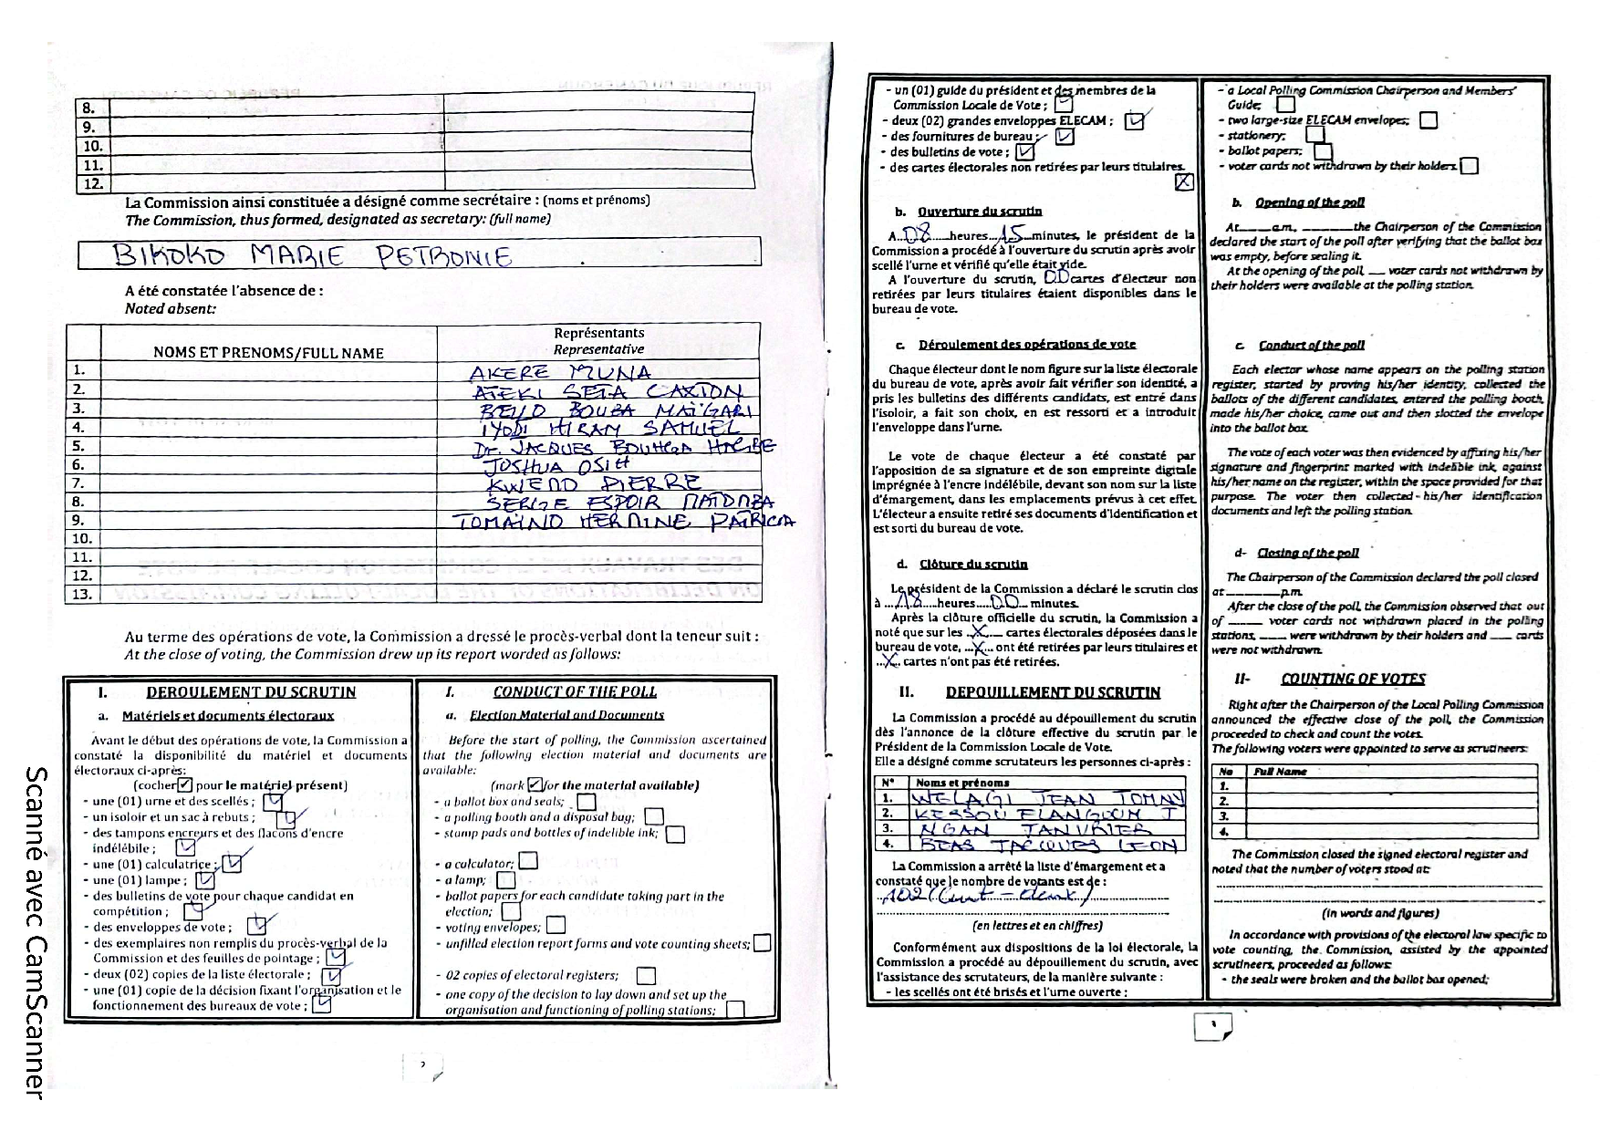 8.
9.
10.
11.
12.
La Commission ainsi constituée a désigné comme secrétaire : (noms et prénoms)
The Commission, thus formed, designated as secretary: (full name)
BIKOKO MARIE PETRONIE
A été constatée l'absence de :
Noted absent:
NOMS ET PRENOMS/FULL NAME
Représentants
Representative
1. AKERE MUNA
2. ATEKI SETA CAXTON
3. BELLO BOUBA MAÏGARI
4. IYODI HIRAM SAMUEL
5. Dr. JACQUES BOUHGA HAGBE
6. JOSHUA OSIH
7. KWEMO PIERRE
8. SERGE ESPOIR MATOMBA
9. TOMAÏNO HERMINE PATRICIA
10.
11.
12.
13.
Au terme des opérations de vote, la Commission a dressé le procès-verbal dont la teneur suit :
At the close of voting, the Commission drew up its report worded as follows:
I. DEROULEMENT DU SCRUTIN
a. Matériels et documents électoraux
Avant le début des opérations de vote, la Commission a
constaté la disponibilité du matériel et documents
électoraux ci-après:
(cocher ✓ pour le matériel présent)
- une (01) urne et des scellés ;
- un isoloir et un sac à rebuts ;
- des tampons encreurs et des flacons d'encre
indélébile ;
- une (01) calculatrice ;
- une (01) lampe ;
- des bulletins de vote pour chaque candidat en
compétition ;
- des enveloppes de vote ;
- des exemplaires non remplis du procès-verbal de la
Commission et des feuilles de pointage ;
- deux (02) copies de la liste électorale ;
- une (01) copie de la décision fixant l'organisation et le
fonctionnement des bureaux de vote ;
I. CONDUCT OF THE POLL
a. Election Material and Documents
Before the start of polling, the Commission ascertained
that the following election material and documents are
available:
(mark ✓ for the material available)
- a ballot box and seals;
- a polling booth and a disposal bag;
- stamp pads and bottles of indelible ink;
- a calculator;
- a lamp;
- ballot papers for each candidate taking part in the
election;
- voting envelopes;
- unfilled election report forms and vote counting sheets;
- 02 copies of electoral registers;
- one copy of the decision to lay down and set up the
organisation and functioning of polling stations;
- un (01) guide du président et des membres de la
Commission Locale de Vote ;
- deux (02) grandes enveloppes ELECAM ;
- des fournitures de bureau ;
- des bulletins de vote ;
- des cartes électorales non retirées par leurs titulaires.
b. Ouverture du scrutin
A...08....heures...15...minutes, le président de la
Commission a procédé à l'ouverture du scrutin après avoir
scellé l'urne et vérifié qu'elle était vide.
A l'ouverture du scrutin, 00 cartes d'électeur non
retirées par leurs titulaires étaient disponibles dans le
bureau de vote.
c. Déroulement des opérations de vote
Chaque électeur dont le nom figure sur la liste électorale
du bureau de vote, après avoir fait vérifier son identité, a
pris les bulletins des différents candidats, est entré dans
l'isoloir, a fait son choix, en est ressorti et a introduit
l'enveloppe dans l'urne.
Le vote de chaque électeur a été constaté par
l'apposition de sa signature et de son empreinte digitale
imprégnée à l'encre indélébile, devant son nom sur la liste
d'émargement, dans les emplacements prévus à cet effet.
L'électeur a ensuite retiré ses documents d'identification et
est sorti du bureau de vote.
d. Clôture du scrutin
Le président de la Commission a déclaré le scrutin clos
à ...18....heures....00... minutes.
Après la clôture officielle du scrutin, la Commission a
noté que sur les ..X.... cartes électorales déposées dans le
bureau de vote, ...X... ont été retirées par leurs titulaires et
...X.. cartes n'ont pas été retirées.
II. DEPOUILLEMENT DU SCRUTIN
La Commission a procédé au dépouillement du scrutin
dès l'annonce de la clôture effective du scrutin par le
Président de la Commission Locale de Vote.
Elle a désigné comme scrutateurs les personnes ci-après :
N° Noms et prénoms
1. WELAGI JEAN TOMAY
2. KESSOU ELANGOUM J
3. NGAN JANVIER
4. BEAS JACQUES LEON
La Commission a arrêté la liste d'émargement et a
constaté que le nombre de votants est de :
102 (Cent - deux)
(en lettres et en chiffres)
Conformément aux dispositions de la loi électorale, la
Commission a procédé au dépouillement du scrutin, avec
l'assistance des scrutateurs, de la manière suivante :
- les scellés ont été brisés et l'urne ouverte :
- a Local Polling Commission Chairperson and Members'
Guide;
- two large-size ELECAM envelopes;
- stationery;
- ballot papers;
- voter cards not withdrawn by their holders.
b. Opening of the poll
At_____a.m, _______the Chairperson of the Commission
declared the start of the poll after verifying that the ballot box
was empty, before sealing it.
At the opening of the poll, ___ voter cards not withdrawn by
their holders were available at the polling station.
c. Conduct of the poll
Each elector whose name appears on the polling station
register, started by proving his/her identity, collected the
ballots of the different candidates, entered the polling booth,
made his/her choice, came out and then slotted the envelope
into the ballot box.
The vote of each voter was then evidenced by affixing his/her
signature and fingerprint marked with indelible ink, against
his/her name on the register, within the space provided for that
purpose. The voter then collected his/her identification
documents and left the polling station.
d- Closing of the poll
The Chairperson of the Commission declared the poll closed
at _________p.m.
After the close of the poll, the Commission observed that out
of _____ voter cards not withdrawn placed in the polling
stations, ____ were withdrawn by their holders and ____ cards
were not withdrawn.
II- COUNTING OF VOTES
Right after the Chairperson of the Local Polling Commission
announced the effective close of the poll, the Commission
proceeded to check and count the votes.
The following voters were appointed to serve as scrutineers:
No Full Name
1.
2.
3.
4.
The Commission closed the signed electoral register and
noted that the number of voters stood at:
(in words and figures)
In accordance with provisions of the electoral law specific to
vote counting, the Commission, assisted by the appointed
scrutineers, proceeded as follows:
- the seals were broken and the ballot box opened;
Scanné avec CamScanner